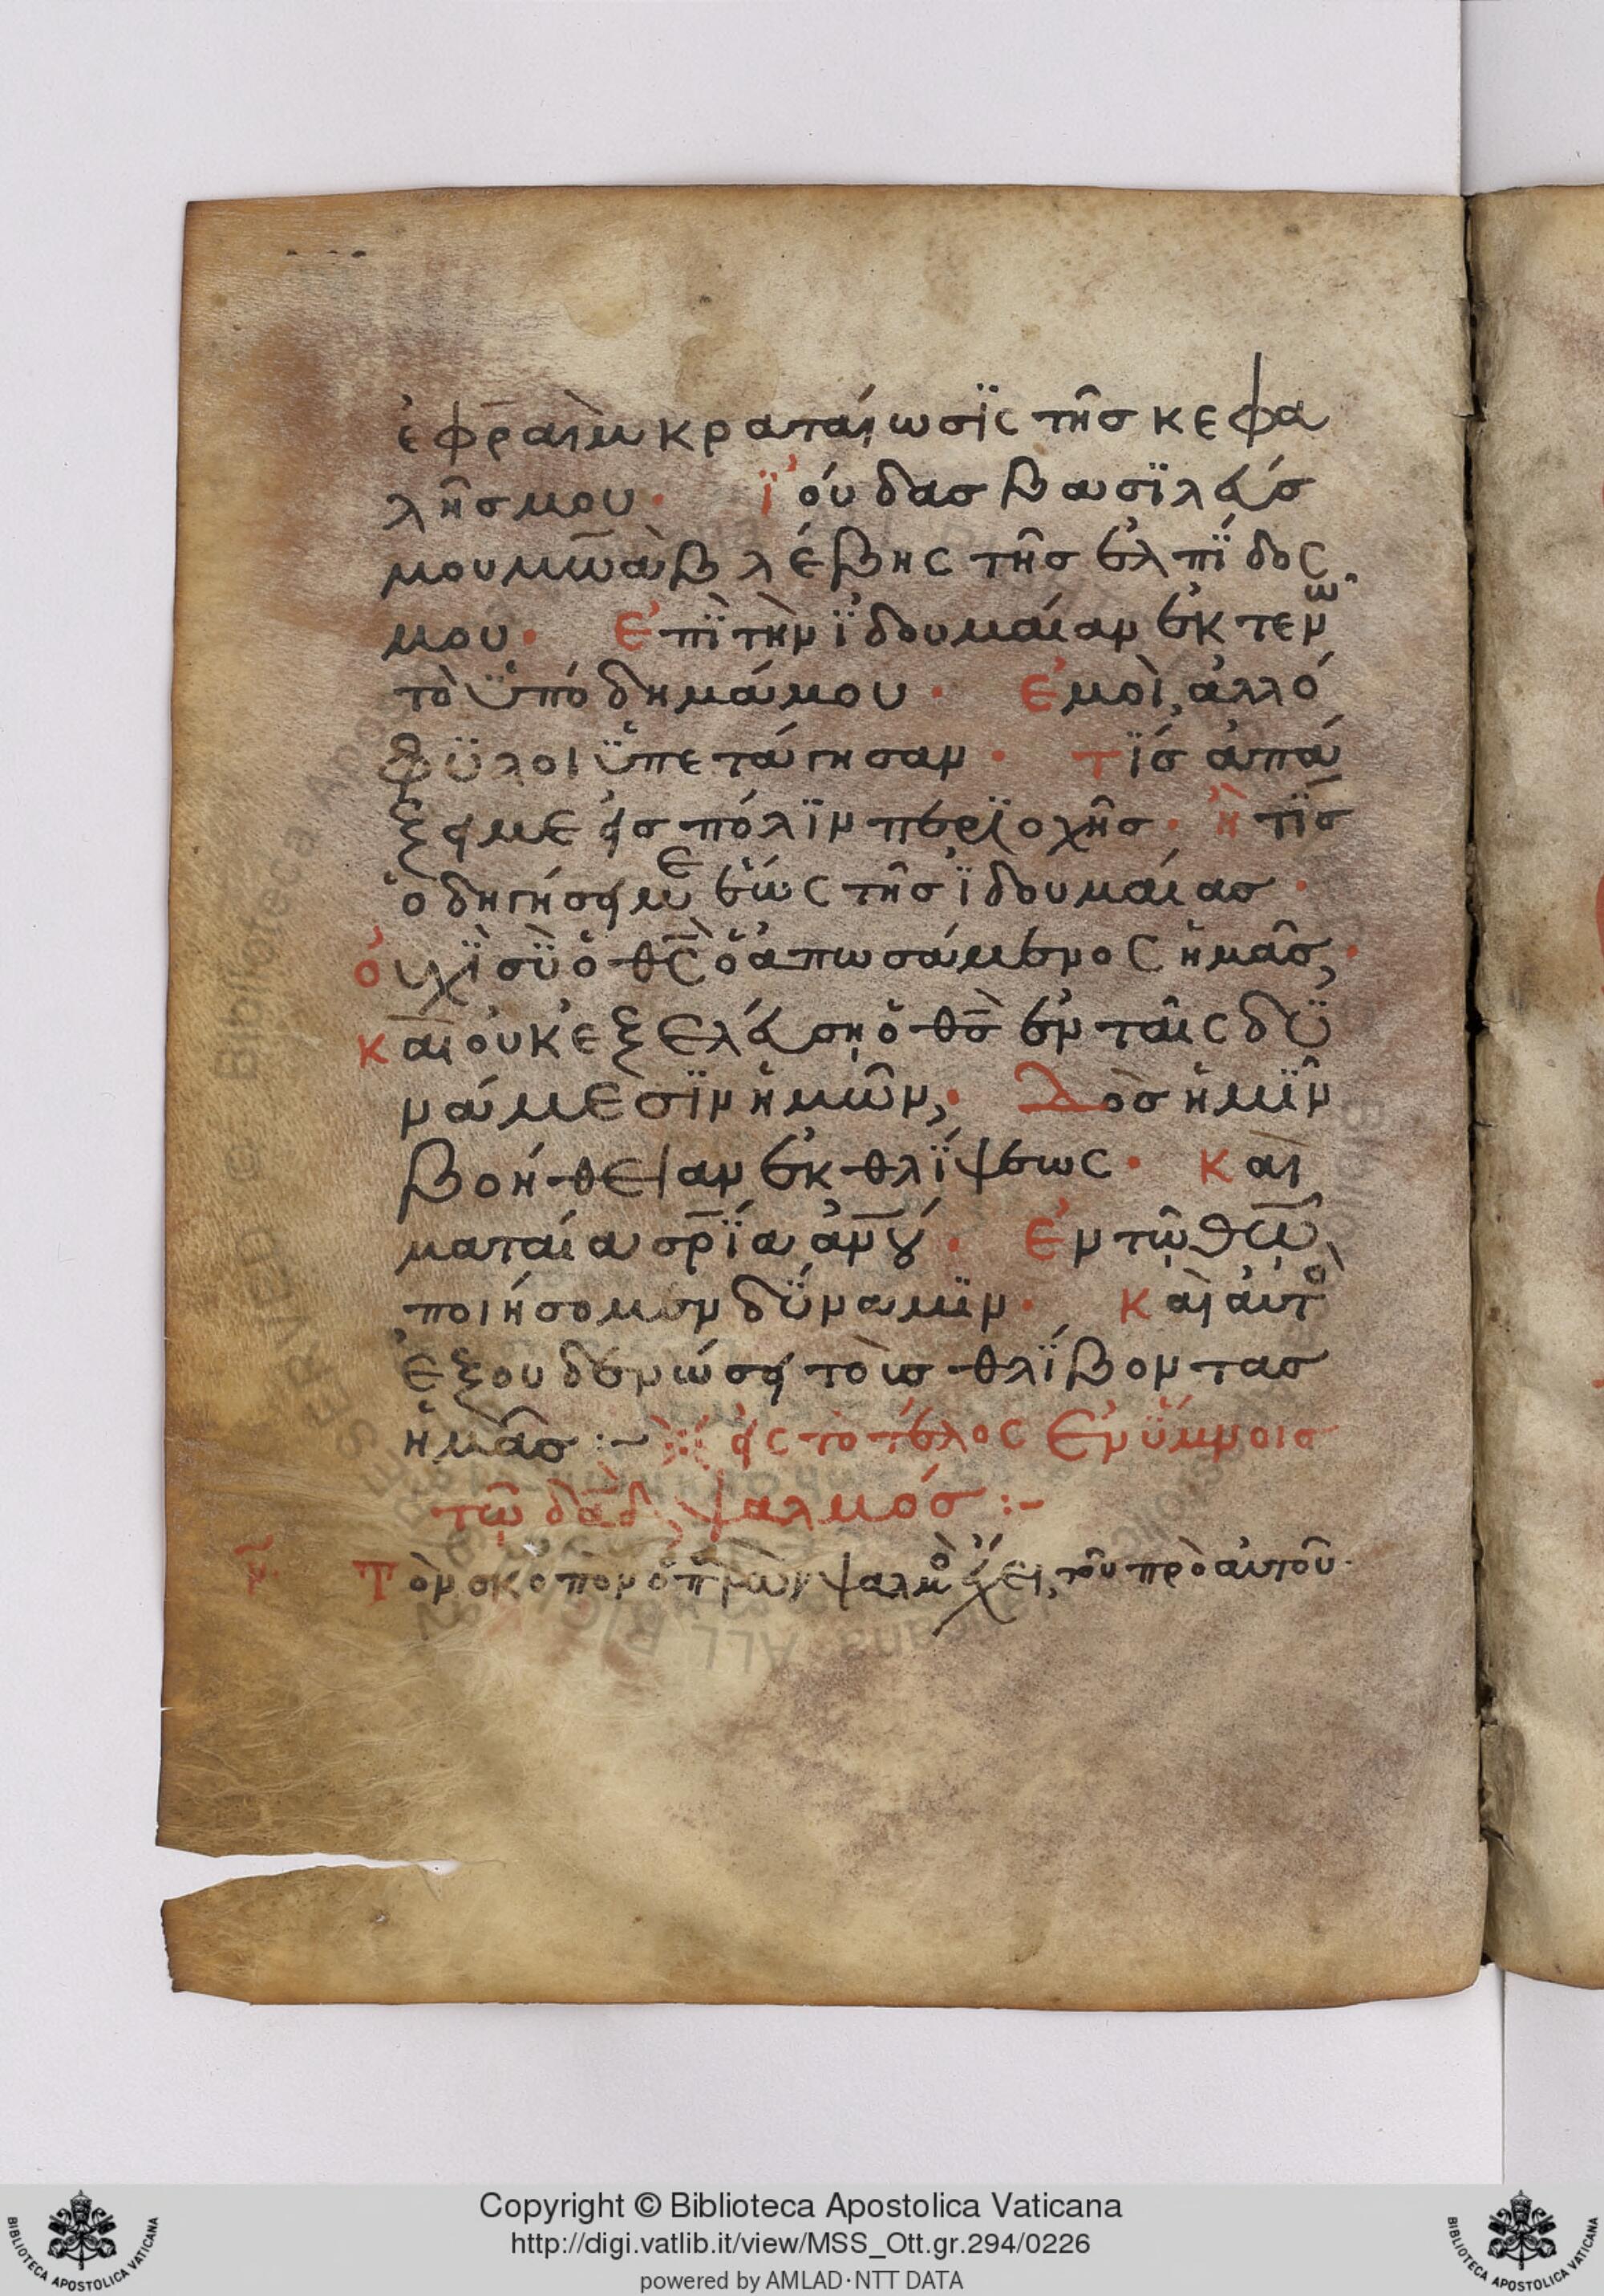 ἐφραὶμ κραταίωσϊς τῆσ κεφα
λῆσ μου· ϊούδασ βασϊλεύσ
μου μωὰβ λέβης τῆσ ἐλπΐδος
μου· Ἐπῒ τὴν ϊδουμαίαν ἐκτενῶ
τὸ ϋπόδημά μου· Ἐμοὶ, ἀλλό
φϋλοι ϋπετάγησαν· τΐσ ἀπά
ξει με εἰσ πόλϊν περϊοχῆσ· ἢ τΐσ
ὁδηγήσει με ἕως τῆσ ϊδουμαίασ·
ὀυχῒ σῢ ὁ θς̄ ὁ ἀπωσάμενος ἡμᾶσ,·
καὶ οὐκ ἐξελεύση ὁ θσ̄ ἐν ταῖς δϋ
νάμεσϊν ἡμῶν,· Δὸσ ἡμῖν
βοήθειαν ἐκ θλΐψεως· καὶ
ματαία σρ̄ΐα ἀν̄ου· Ἐν τῶ θω̄
ποιήσομεν δΰναμϊν· καὶ ἀυτὸ
ἐξουδενώσει τοὺσ θλΐβοντασ
ἡμᾶσ :~ εἰς τὸ τέλος ἐν ΰμνοισ
τῶ δᾱδ, ψαλμόσ :-
Τὸν σκοπὸν ὁ πρὼν ψαλμὸ ἔχει, τοῦ πρὸ ἀυτοῦ·
Copyright © Biblioteca Apostolica Vaticana
http://digi.vatlib.it/view/MSS_Ott.gr.294/0226
powered by AMLAD·NTT DATA
BIBLIOTECA APOSTOLICA VATICANA
BIBLIOTECA APOSTOLICA VATICANA